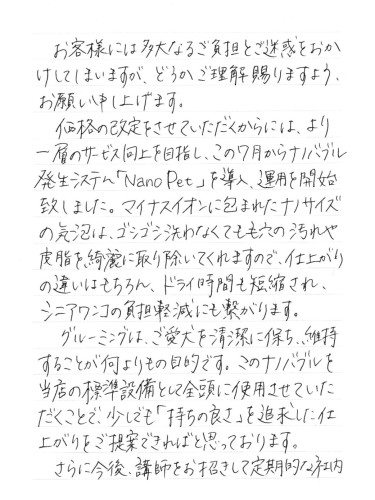 お客様には多大なるご負担とご迷惑をおか
けしてしまいますが、どうかご理解賜りますよう、
お願い申し上げます。
価格の改定をさせていただくからには、より
一層のサービス向上を目指し、この7月からナノバブル
発生システム「Nano Pet」を導入、運用を開始
致しました。マイナスイオンに包まれたナノサイズ
の気泡は、ゴシゴシ洗わなくても毛穴の汚れや
皮脂を綺麗に取り除いてくれますので、仕上がり
の違いはもちろん、ドライ時間も短縮され、
シニアワンコの負担軽減にも繋がります。
グルーミングは、ご愛犬を清潔に保ち、維持
することが何よりもの目的です。このナノバブルを
当店の標準設備として全頭に使用させていた
だくことで、少しでも「持ちの良さ」を追求した仕
上がりをご提案できればと思っております。
さらに今後、講師をお招きして定期的な社内